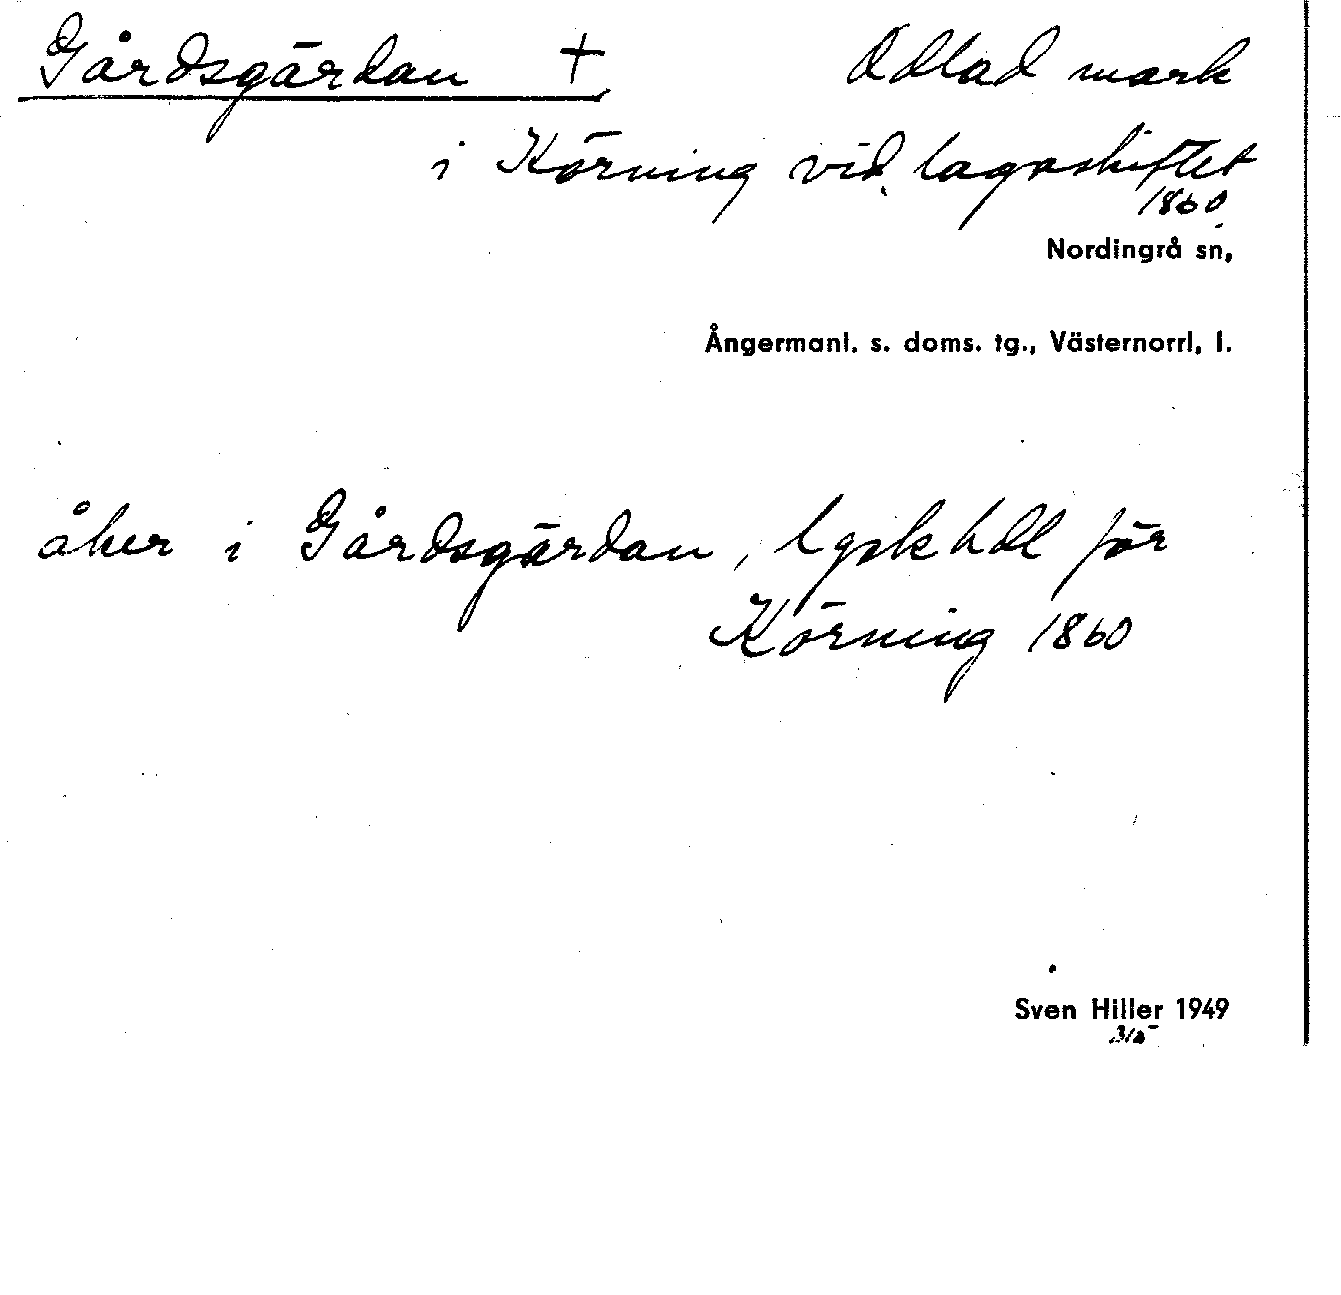 Gårdsgärdan + Odlad mark
i Körning vid lagaskiftet
1860
Nordingrå sn,
Ångermanl. s. doms. tg., Västernorrl. l.
åker i Gårdsgärdan, lgsk hdl för
Körning 1860
Sven Hiller 1949